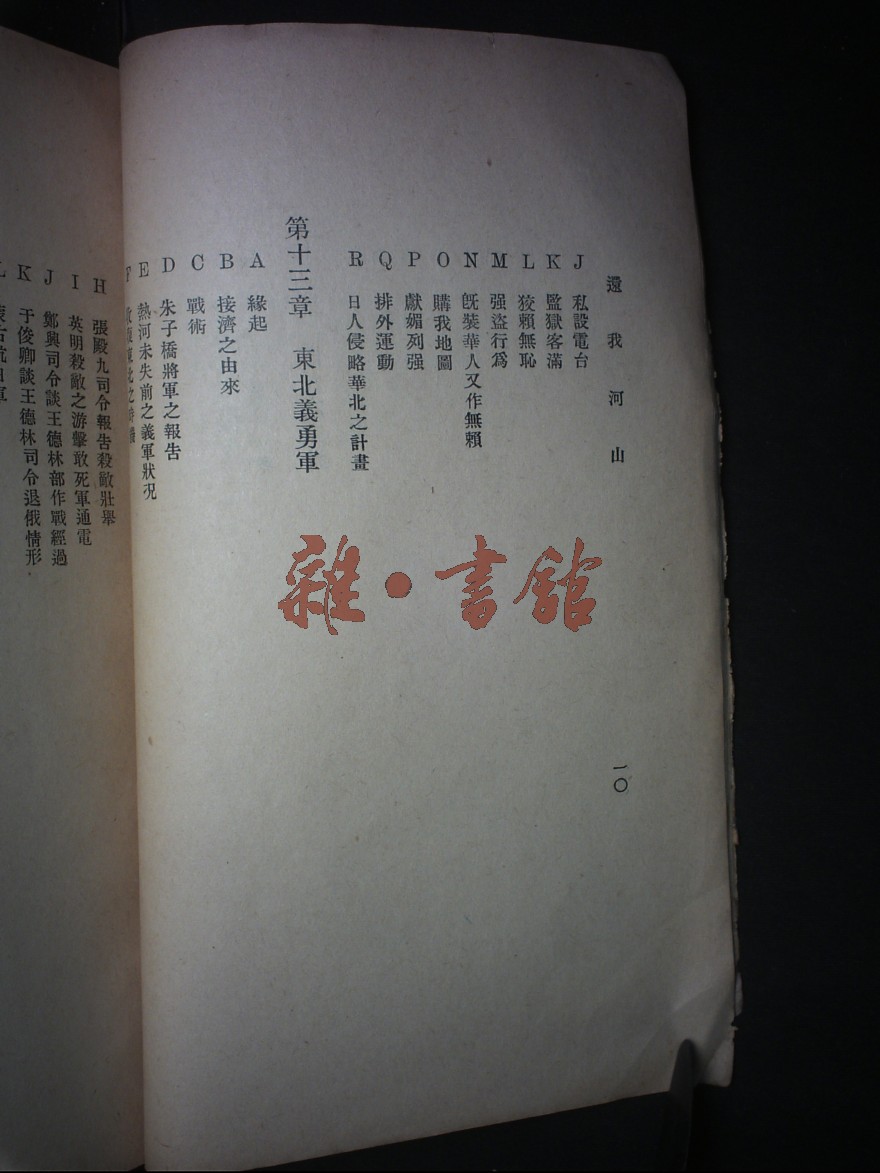 還我河山
一〇
J 私設電台
K 監獄客滿
L 狡賴無恥
M 强盜行爲
N 旣裝華人又作無賴
O 購我地圖
P 獻媚列强
Q 排外運動
R 日人侵略華北之計畫
第十三章 東北義勇軍
A 緣起
B 接濟之由來
C 戰術
D 朱子橋將軍之報告
E 熱河未失前之義軍狀況
F 東北之
H 張殿九司令報告殺敵壯舉
I 英明殺敵之游擊敢死軍通電
J 鄭興司令談王德林部作戰經過
K 于俊卿談王德林司令退俄情形
L
雜·書館